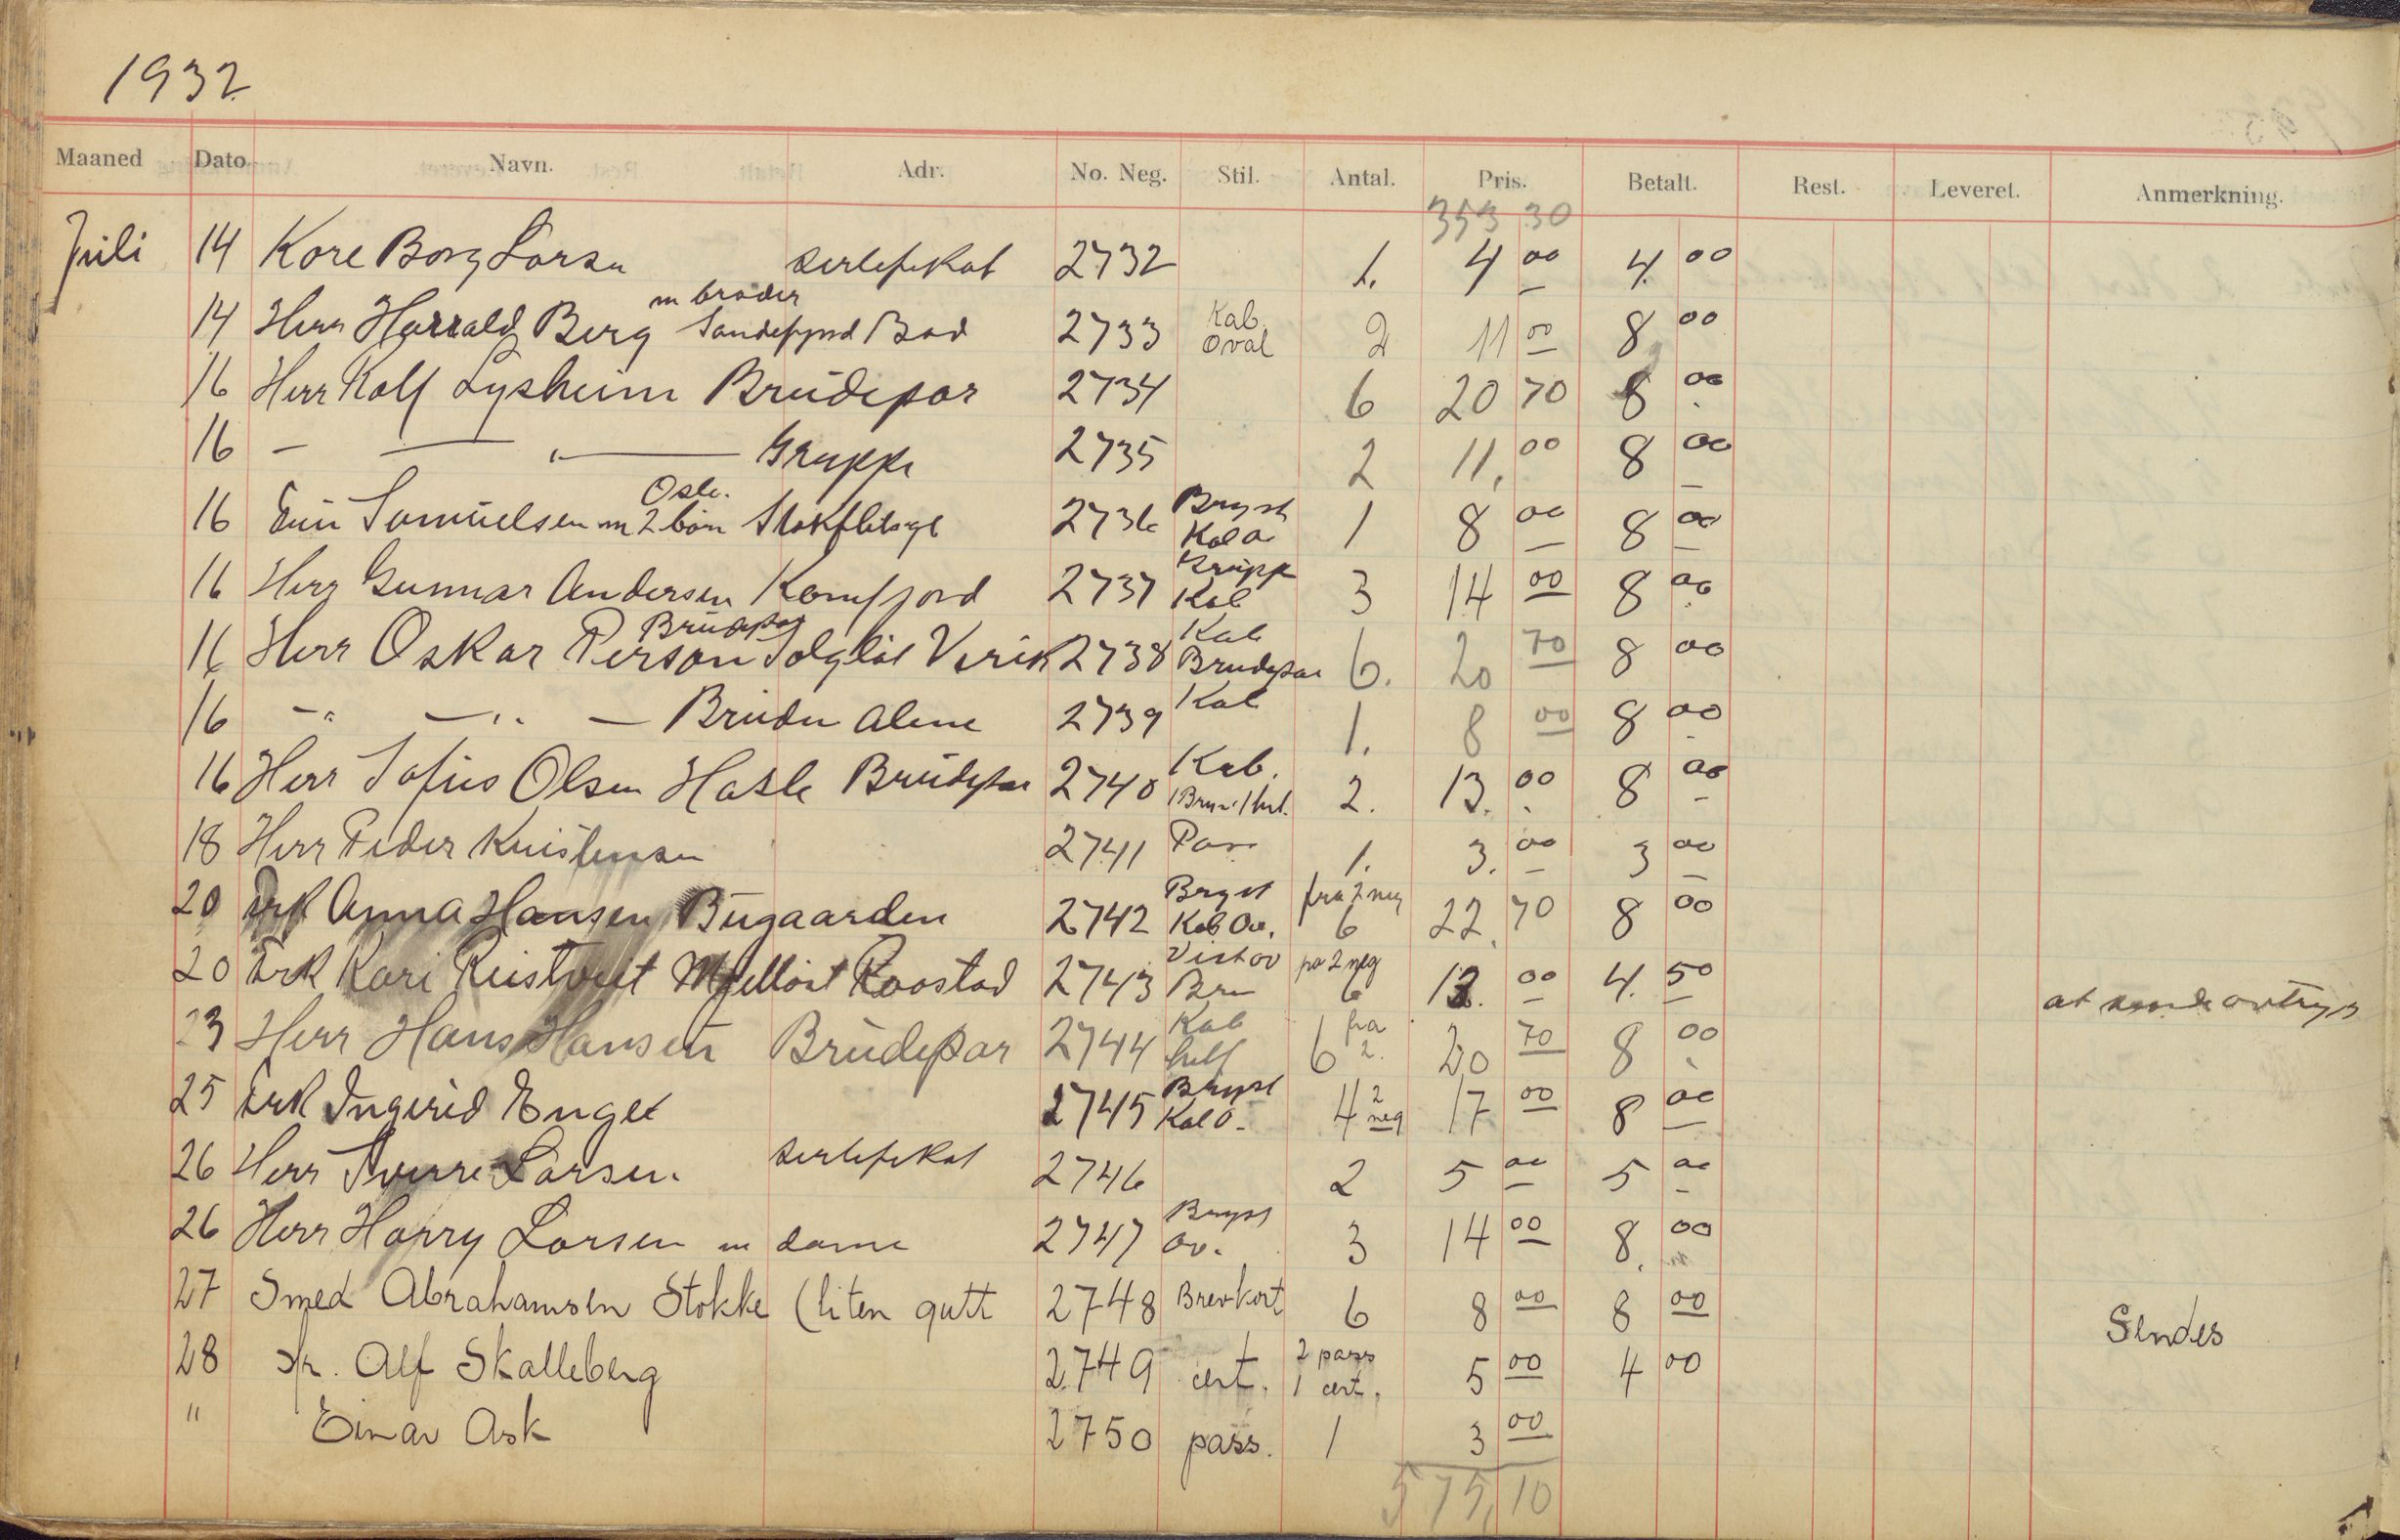 1932
Maaned Dato Navn. Adr. No. Neg. Stil. Antal. Pris. Betalt. Rest. Leveret. Anmerkning.
353 30
Juli 14 Kore Borg Larsen sertefikat 2732 1. 4 00 4. 00
m broder
14 Herr Harrald Berg Sandefjord Bad 2733 Kab. Oval 2 11 00 8 00
16 Herr Rolf Lysheim Brudepar 2734 6 20 70 8 00
16 — — " — Gruppe 2735 2 11, 00 8 00
Oslo.
16 Samuelsen m 2 barn 2736 Bryst Kab O 1 8 00 8 00
16 Herr Gunnar Andersen 2737 Gruppe Kab 3 14 00 8 00
Brudepar
16 Herr Oskar Person Solgløt Verik 2738 Kab Brudepar 6. 20 70 8 00
16 — " — " — Bruden alene 2739 Kab 1. 8 00 8 00
16 Herr Sofus Olsen Hasle Brudepar 2740 Kab. 2. 13. 00 8 00
18 Herr Peder Kristensen 2741 Pass 1. 3. 00 3 00
20 Frk Anna Hansen Bugaarden 2742 Bryst Kab Ov. fra 2 neg 6 22, 70 8 00
20 Frk Kari Raastad 2743 Visit ov Bru pa 2 neg 6 13. 00 4. 50
at sende avtryk
23 Herr Hans Hansen Brudepar 2744 Kab helf 6 fra 2. 20 70 8 00
25 Frk Ingerid Enget 2745 Bryst Kab O. 4 2 neg 17 00 8 00
26 Herr Sverre Larsen. sertefikat 2746 2 5 00 5 00
26 Herr Harry Larsen m dame 2747 Bryst ov. 3 14 00 8. 00
27 Smed Abrahamsen Stokke (liten gutt 2748 Brevkort 6 8 00 8 00 Sendes
28 hr. Alf Skalleberg 2749 cert. 2 pass 1 cert. 5 00 4 00
" Einar Ask 2750 pass. 1 3 00
575,10